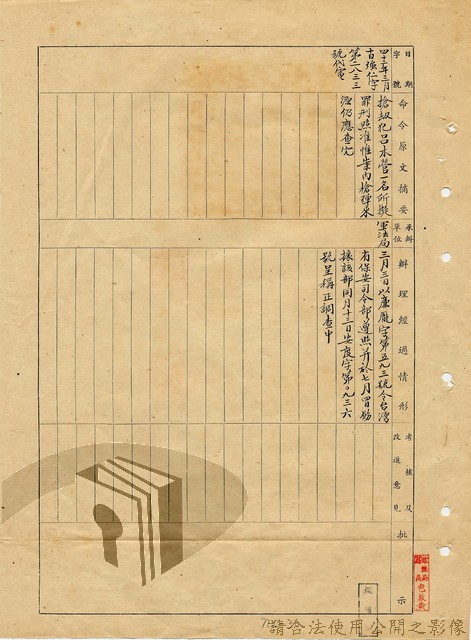 日期
字號
命令原文摘要
承辦單位
辦理經過情形
考核及改進意見
批示
四十一年三月
第二八三三
號代電
搶劫犯呂木營一名所擬
罪刑照准惟案內槍彈來
源仍應查究
軍法局
三月三日以廉龐字第五九三號令台灣
省保安司令部遵照并於七月
據該部同月十三日安度字第〇九三六
號呈稱正調查中
請洽法使用公開之影像